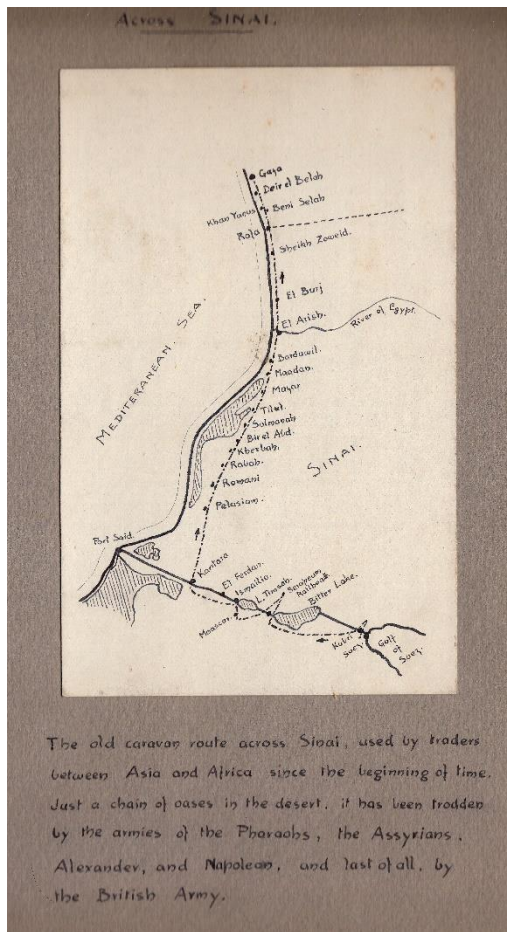 Across SINAI.
Gaza
Deir el Belah
Khan Yunus
Beni Selah
Rafa
Sheikh Zoweid.
El Burj
El Arish.
River of Egypt.
MEDITERANEAN. SEA.
Bardawil.
Maadan.
Mazar
Tilul.
Salmanah
Bir el Abd.
Kherbah.
Rabah.
Romani
Pelusium.
SINAI.
Port Said.
Kantara
El Ferdan.
Ismailia.
L. Timsah.
Serapeum
Railhead.
Bitter Lake.
Moascar.
Kubri
Suez.
Gulf
of
Suez.
The old caravan route across Sinai, used by traders
between Asia and Africa since the beginning of time.
Just a chain of oases in the desert, it has been trodden
by the armies of the Pharaohs, the Assyrians,
Alexander, and Napoleon, and last of all, by
the British Army.